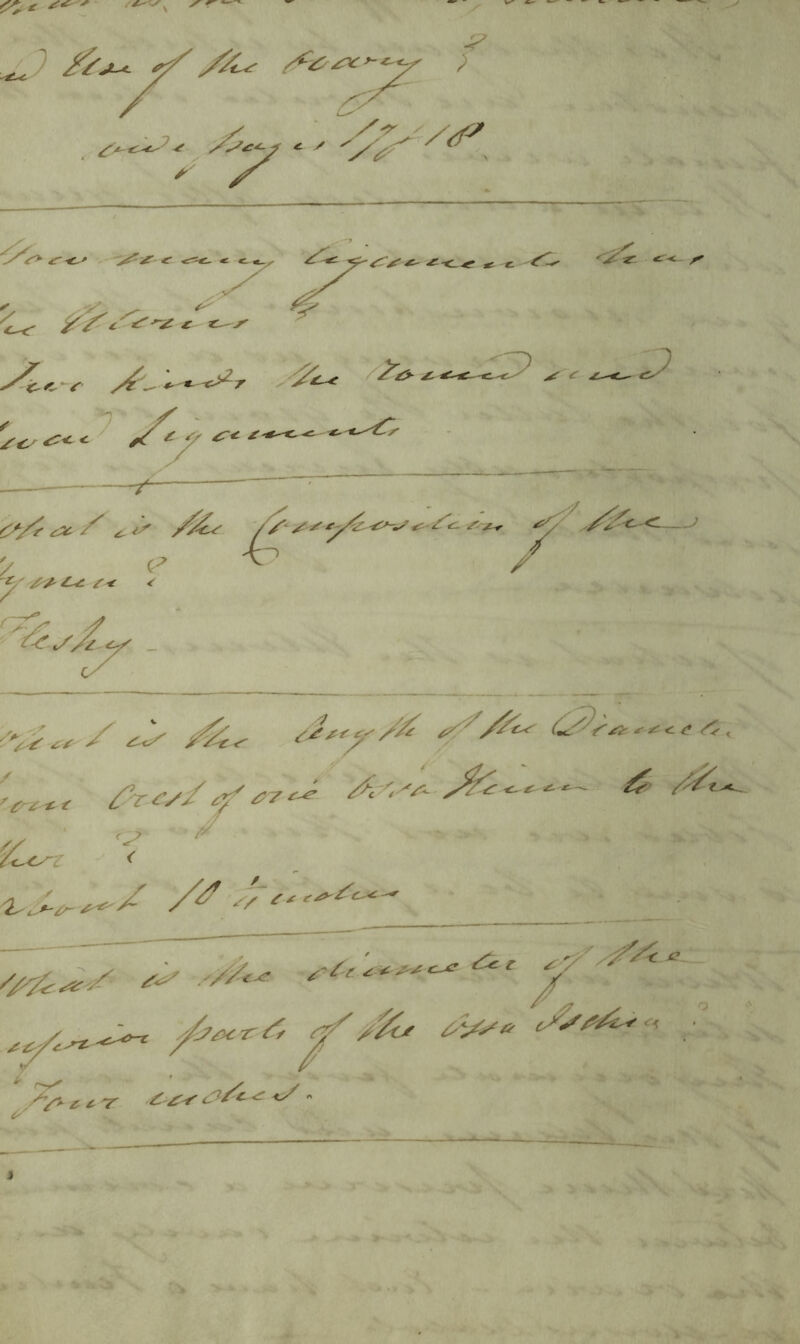 Use of the ovary ?
page 17 & 18
How many Ligaments has
the Uterus ?
Two kinds the round and
broad Ligaments
What is the Composition of the
hymen ?
Fleshy -
What is the length of the Diamete
from Crest of one Ossa Ileum to the
other ?
About 10 ½ inches
What is the diameter of the
inferior parts of the Ossa Ischia ?
Four inches .